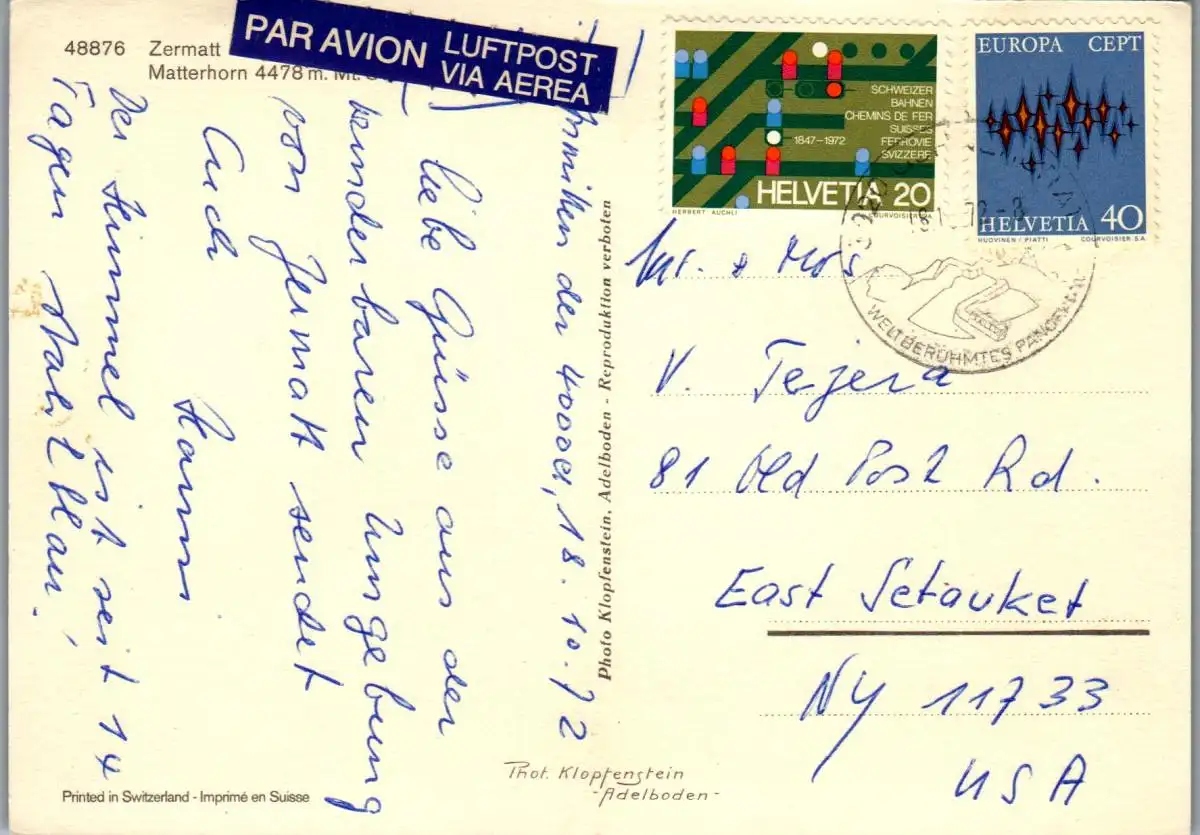 48876 Zermatt
Matterhorn 4478 m. Mt.
PAR AVION
LUFTPOST
VIA AEREA
inmitten der 4000er, 18.10.72
liebe Grüsse aus der
wunderbaren Umgebung
von Zermatt sendet
Euch
Hanns
Der Himmel ist seit 14
Tagen stahlblau!
Photo Klopfenstein, Adelboden - Reproduktion verboten
Phot. Klopfenstein
-Adelboden-
Printed in Switzerland - Imprimé en Suisse
SCHWEIZER
BAHNEN
CHEMINS DE FER
SUISSES
FERROVIE
SVIZZERE
1847-1972
HELVETIA 20
HERBERT AUCHLI
COURVOISIER SA
EUROPA CEPT
HELVETIA 40
HUOVINEN / PIATTI
COURVOISIER S.A.
72-8
WELTBERÜHMTES
Mr. + Mrs
V. Tejera
81 Old Post Rd.
East Setauket
NY 11733
USA